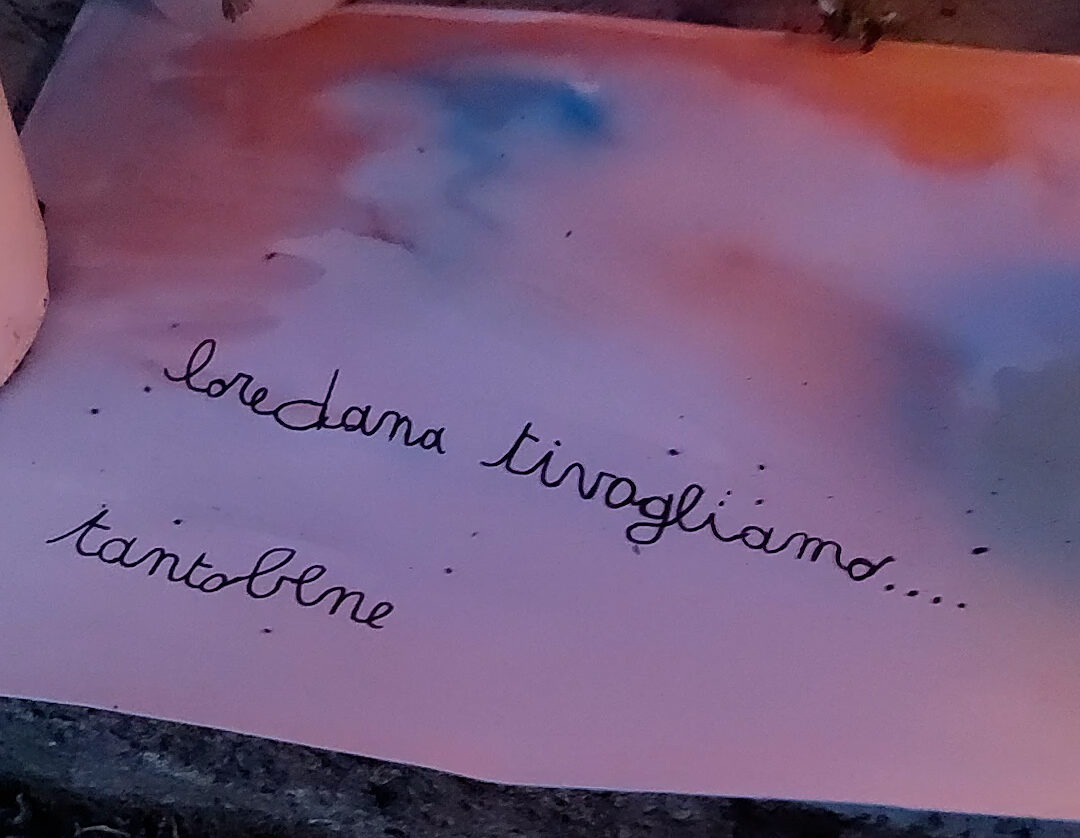 loredana tivogliamo....
tantobene